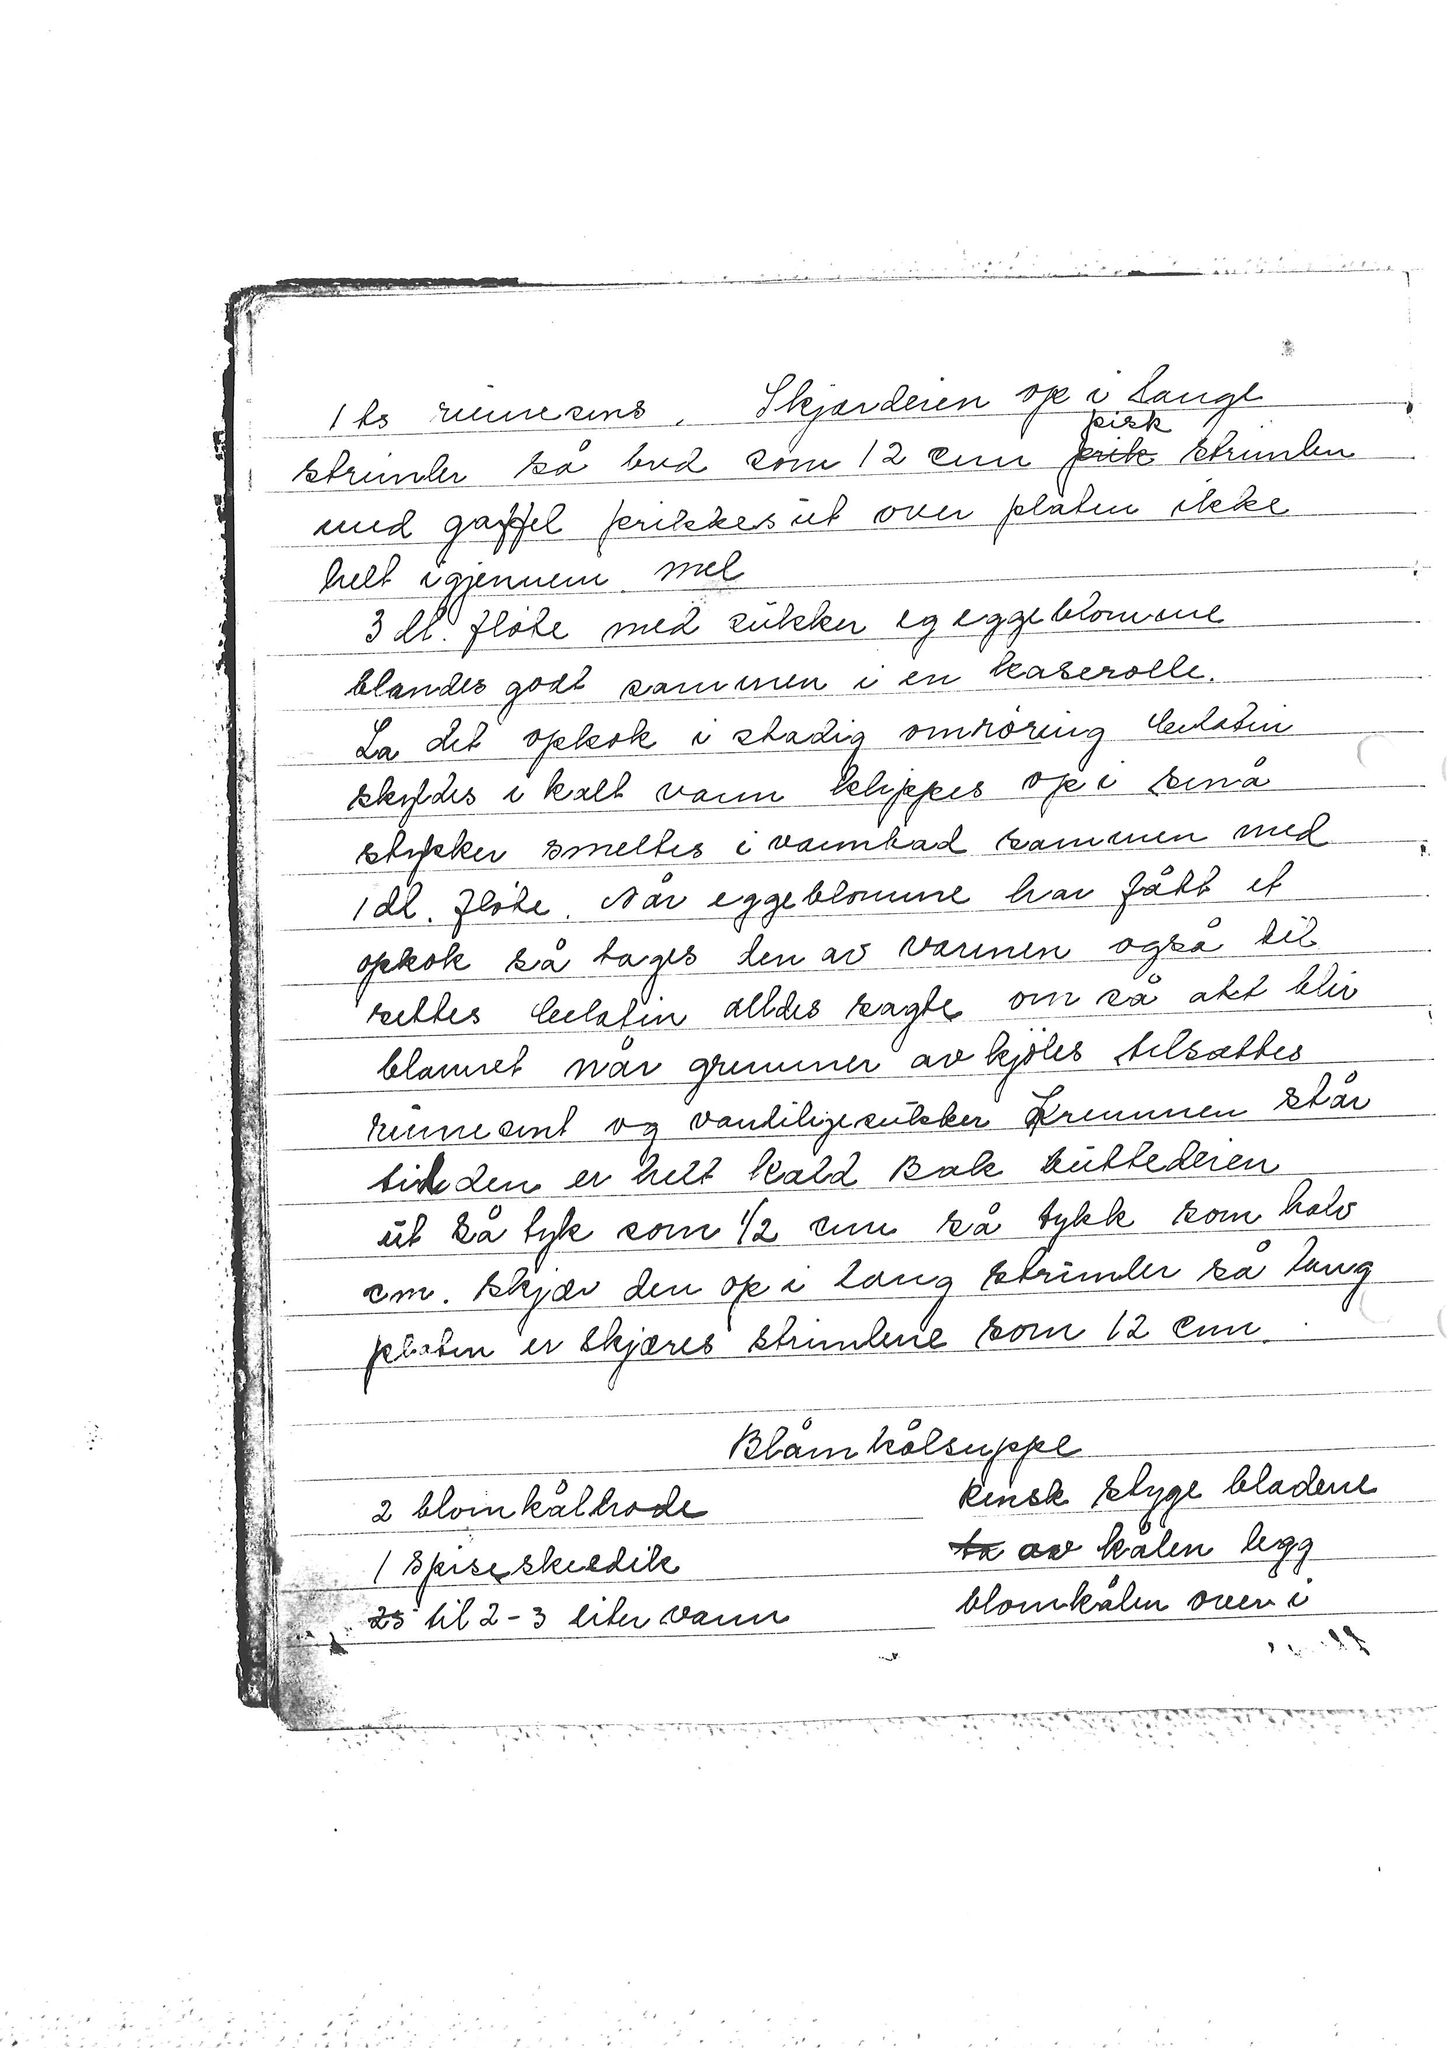 1 ts rumesens. Skjærdeien op i lange
strimler så bred som 12 cm prik pirk strimlen
med gaffel prikkes ut over platen ikke
helt igjennem mel
3 dl. fløte med sukker og eggeblomme
blandes godt sammen i en kaserolle.
La det opkok i stadig omrøring Gelatin
skyldes i kalt vann klippes op i små
stykker smeltes i vannbad sammen med
1 dl. fløte. Når eggeblomme har fått et
opkok så tages den av varmen også til
settes Gelatin alldes sagte om så alt blir
blannet når gremmer av kjøles tilsættes
rumesent og vaniljesukker Kremmen står
til den er helt kald Bak buttedeien
ut så tyk som 1/2 cm så tykk som halv
cm. skjær den op i lang strimler så lang
platen er skjæres strimlene som 12 cm.
Blåmkålsuppe
2 blomkålhode
1 spiseskeedik
25 til 2-3 liter vann
Rensk styge bladene
ta av kålen legg
blomkålen over i